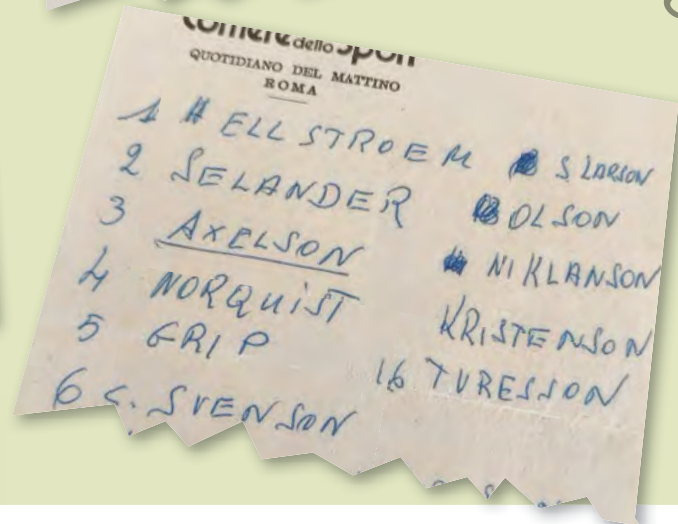 Corriere dello Sport
QUOTIDIANO DEL MATTINO
ROMA
1 HELLSTROEM
2 SELANDER
3 AXELSON
4 NORQUIST
5 GRIP
6 C. SVENSON
S LARSON
OLSON
NIKLANSON
KRISTENSON
16 TURESSON